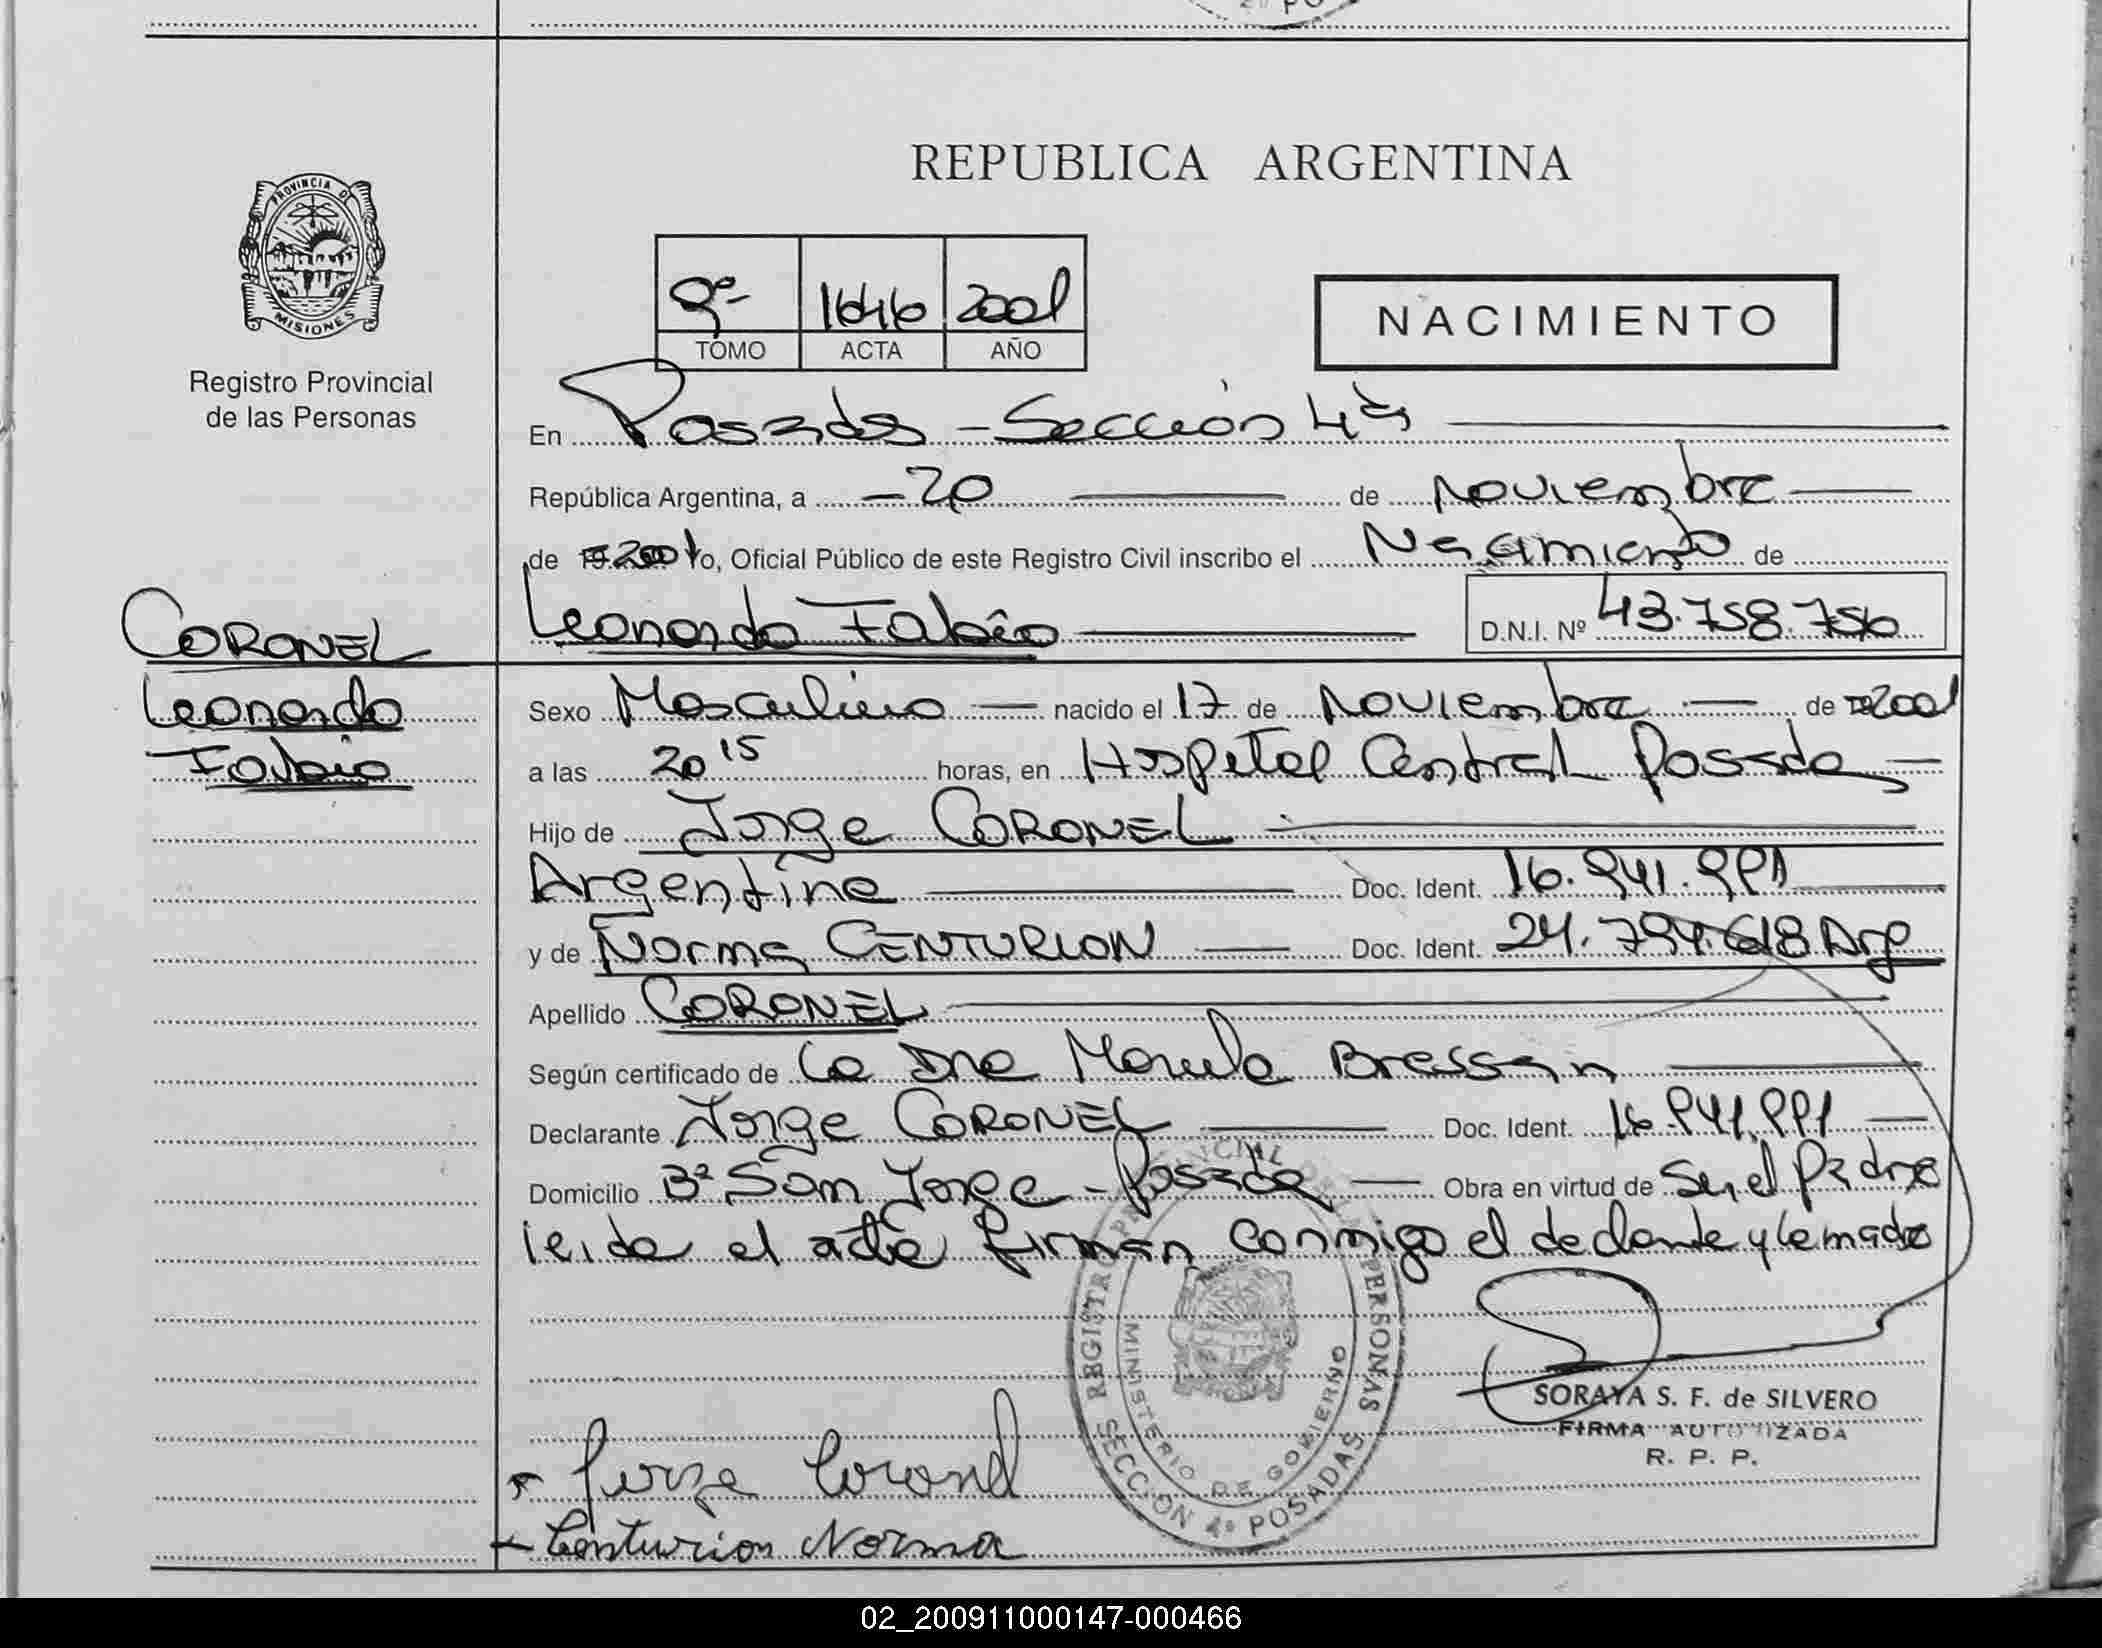 REPUBLICA ARGENTINA
PROVINCIA DE MISIONES
Registro Provincial
de las Personas
1646 2001
TOMO ACTA AÑO
NACIMIENTO
En Posadas - Sección 4ta
República Argentina, a - 20 de Noviembre
de 2001 Yo, Oficial Público de este Registro Civil inscribo el Nacimiento de
Leonardo Fabio D.N.I. Nº 43.758.756
CORONEL
Leonardo
Fabio
Sexo Masculino nacido el 17 de Noviembre de 2001
a las 20 15 horas, en Hospital Central Posadas
Hijo de Jorge CORONEL
Argentina Doc. Ident. 16.941.991
y de Norma CENTURION Doc. Ident. 24.794.618 Arg
Apellido CORONEL
Según certificado de La Dra Bressan
Declarante Jorge CORONEL Doc. Ident. 16.941.991
Domicilio Bº San Jorge - Posadas Obra en virtud de Ser el Padre
leida el acta firman conmigo el declarante y la madre
REGISTRO PROVINCIAL DE LAS PERSONAS
MINISTERIO DE GOBIERNO
SECCION 4º POSADAS
SORAYA S. F. de SILVERO
FIRMA AUTORIZADA
R. P. P.
Jorge Coronel
Centurion Norma
02_200911000147-000466